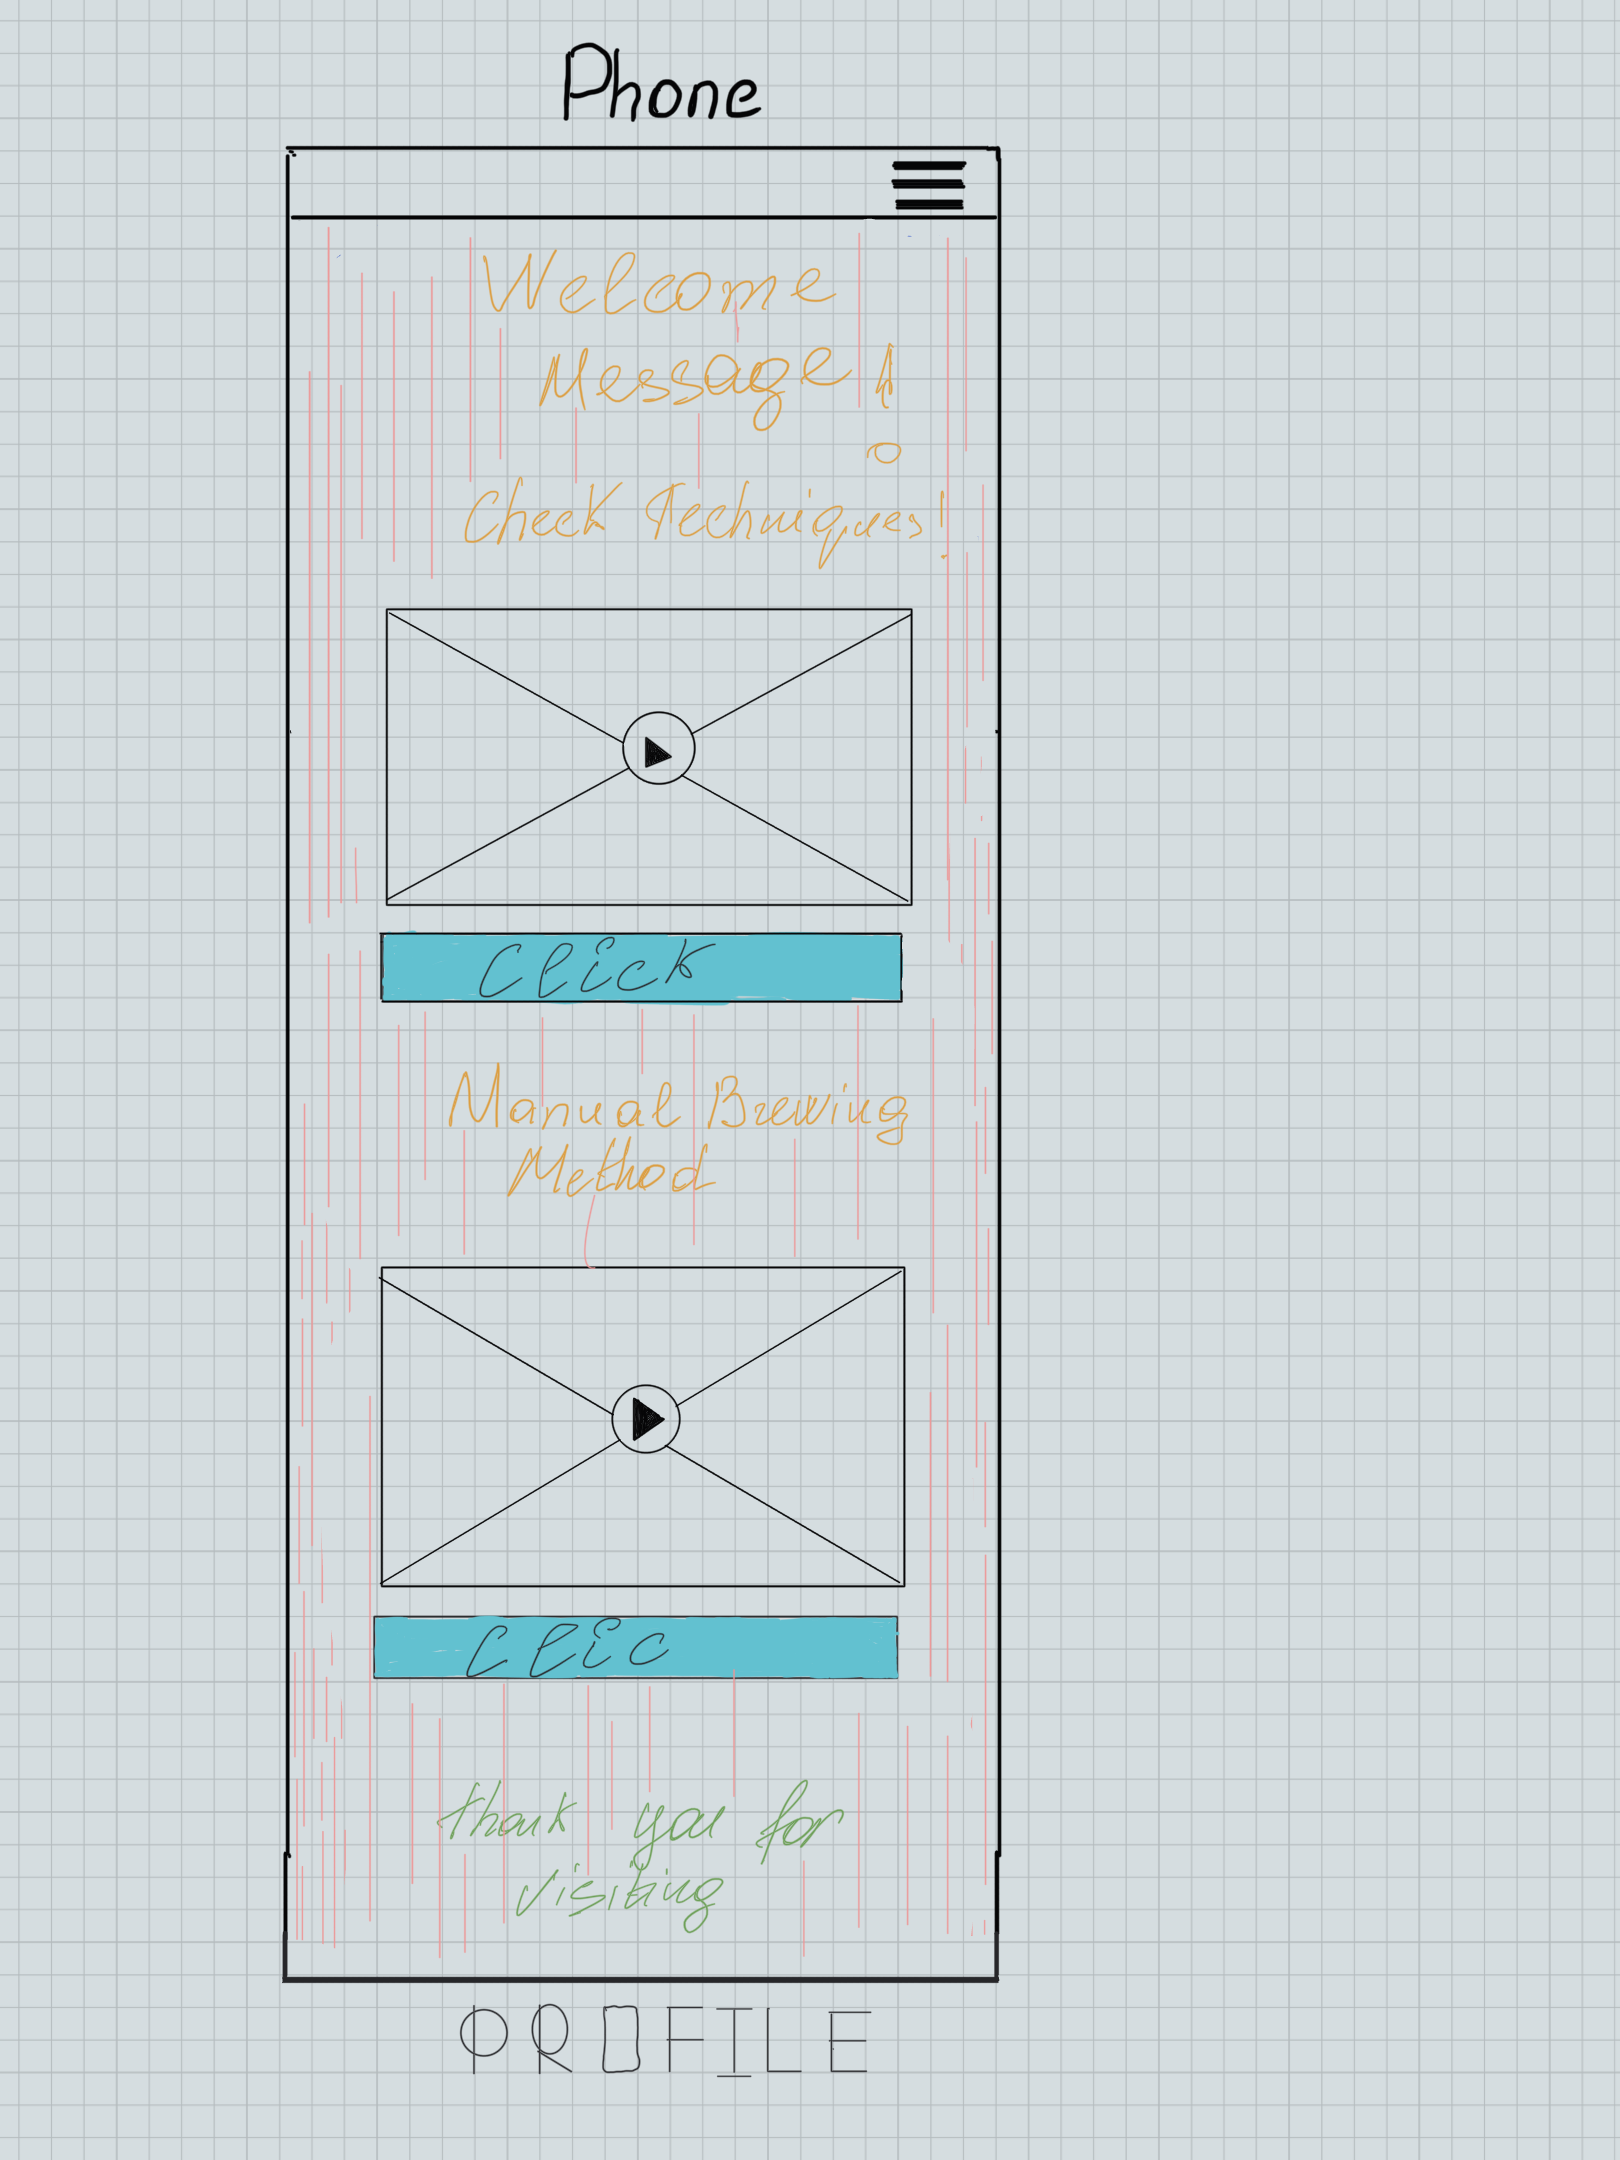 Phone
Welcome
Message!
Check Techniques!
Click
Manual Brewing
Method
Clic
thank you for
visiting
PROFILE